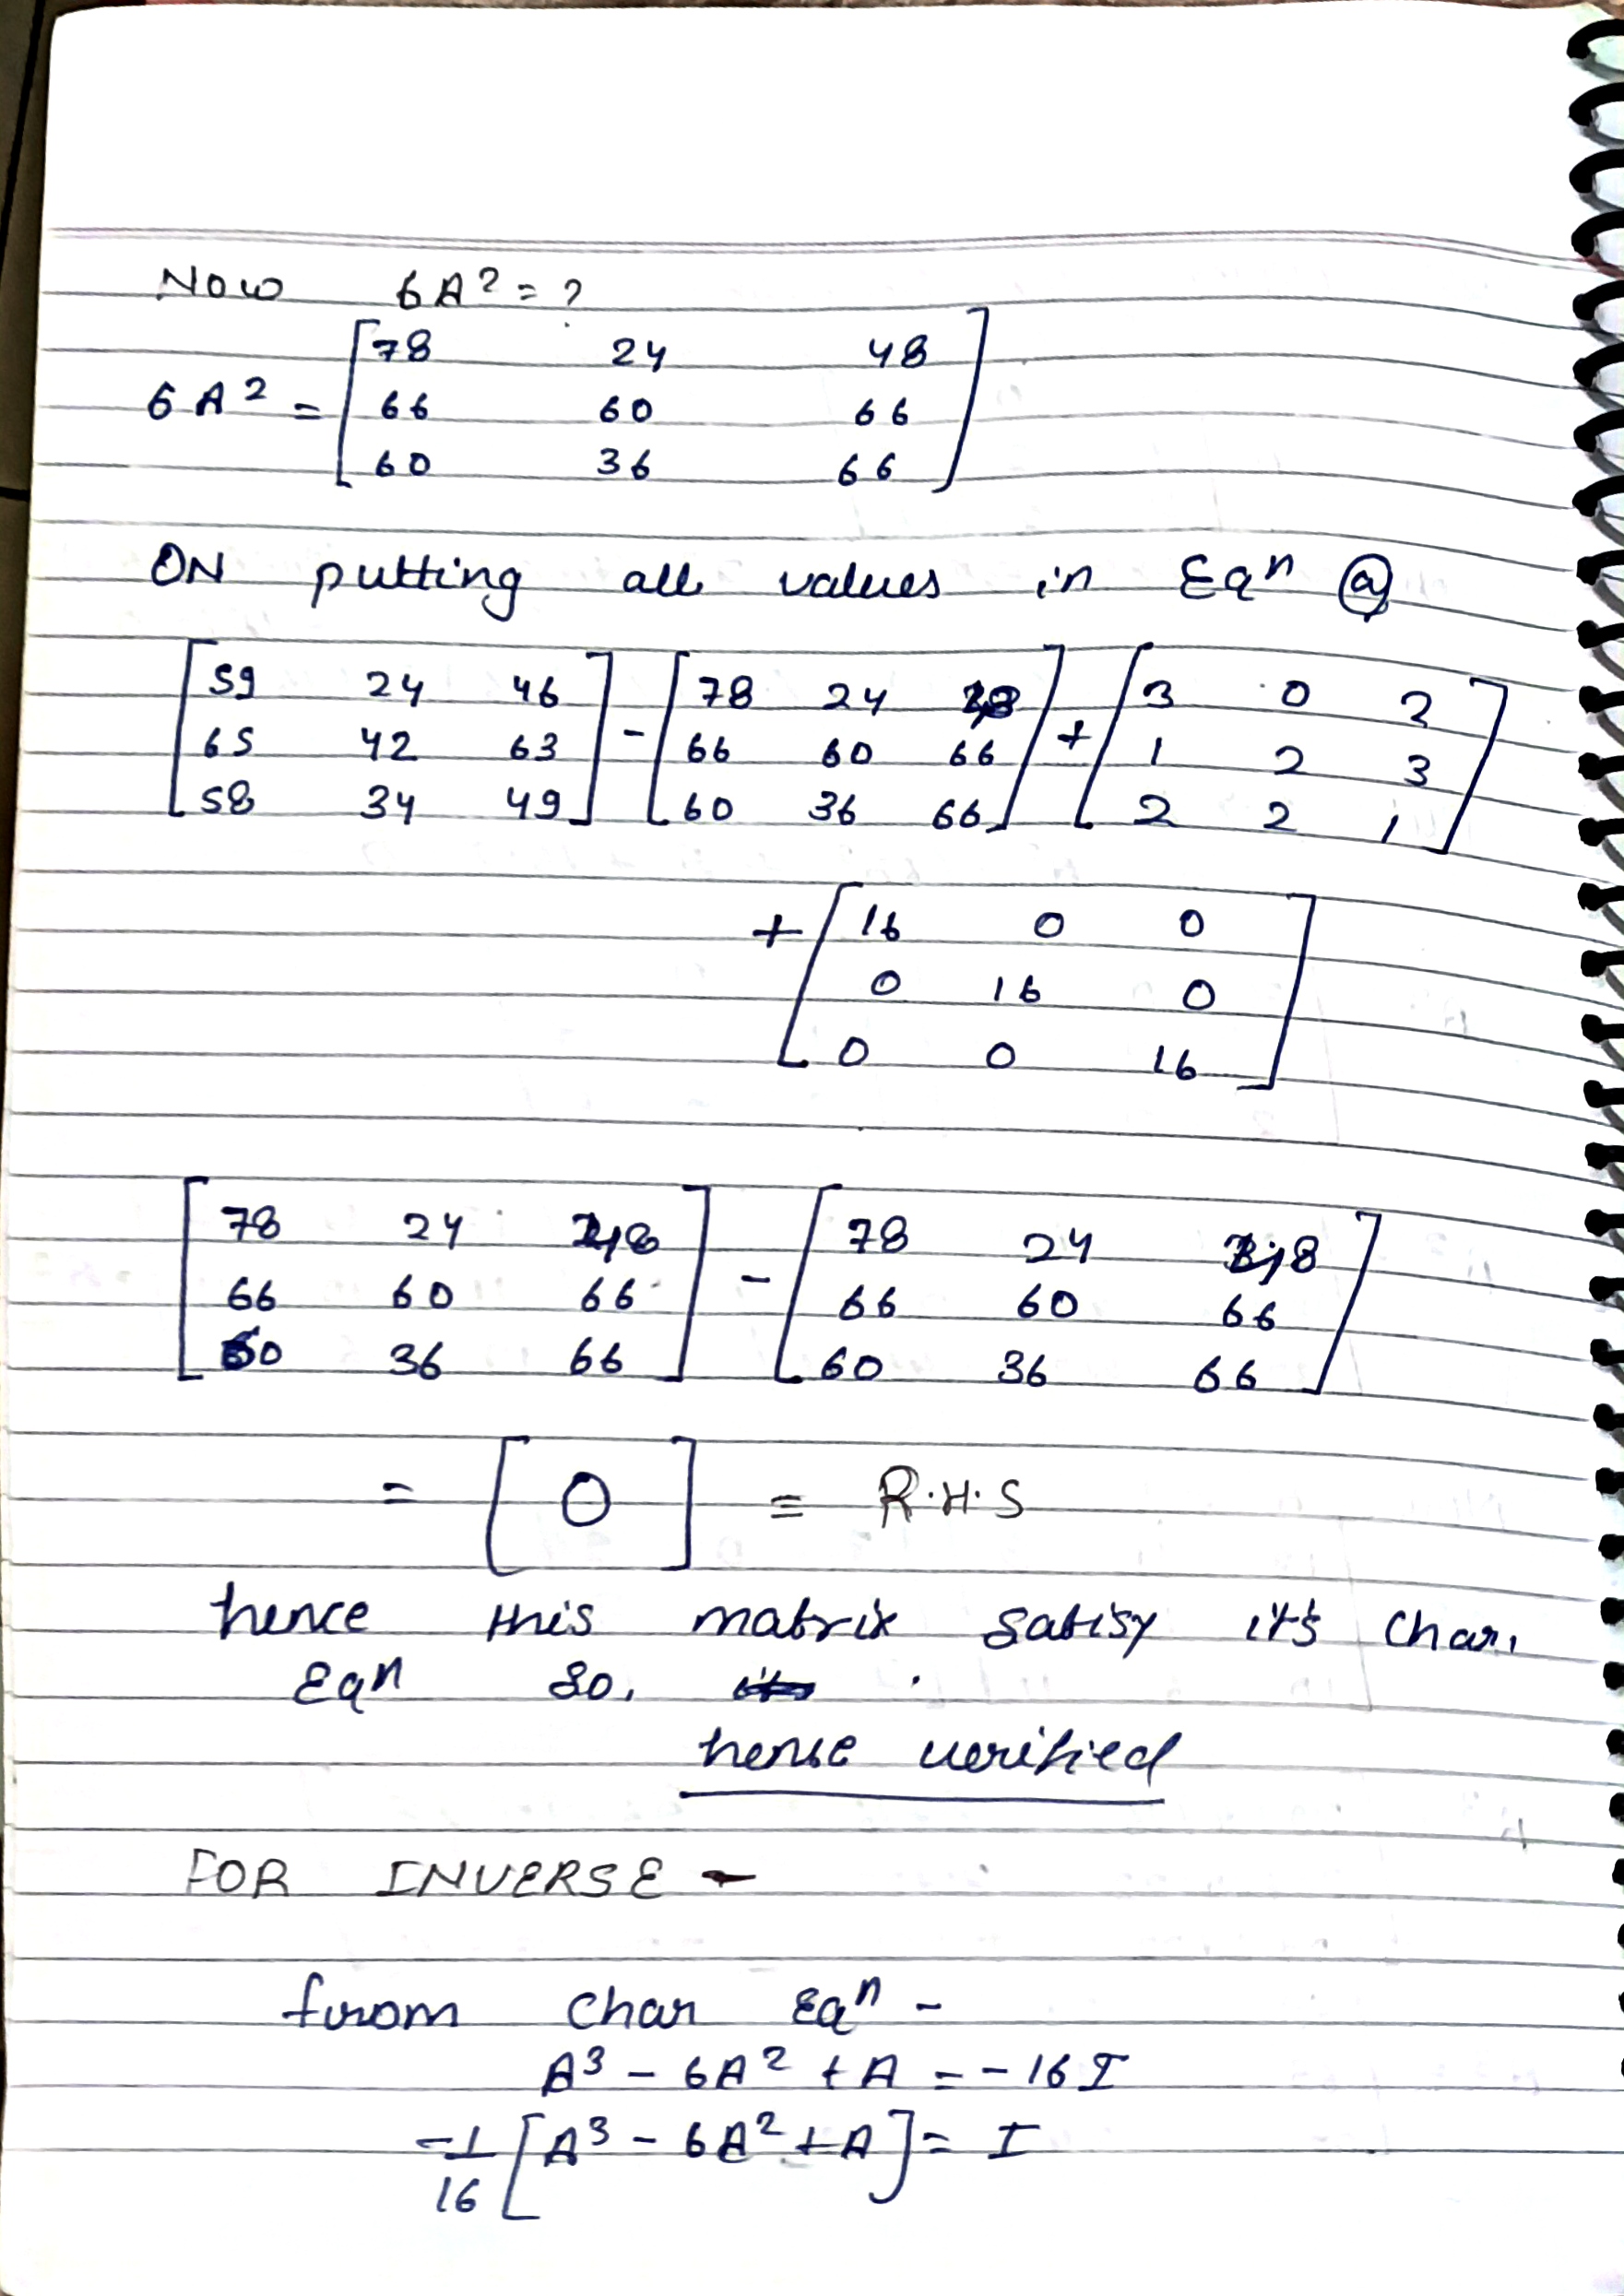 Now 6A² = ?
6A² = [78 24 48
66 60 66
60 36 66]
ON putting all values in Eqⁿ ⓐ
[59 24 46] - [78 24 48] + [3 0 2]
[65 42 63] [66 60 66] [1 2 3]
[58 34 49] [60 36 66] [2 2 1]
+ [16 0 0
0 16 0
0 0 16]
[78 24 48] - [78 24 48]
[66 60 66] [66 60 66]
[60 36 66] [60 36 66]
= [0] = R.H.S
hence this matrix satisy it's char.
Eqⁿ So,
hense verified
FOR INVERSE -
from char Eqⁿ -
A³ - 6A² + A = -16I
-1/16 [A³ - 6A² + A] = I